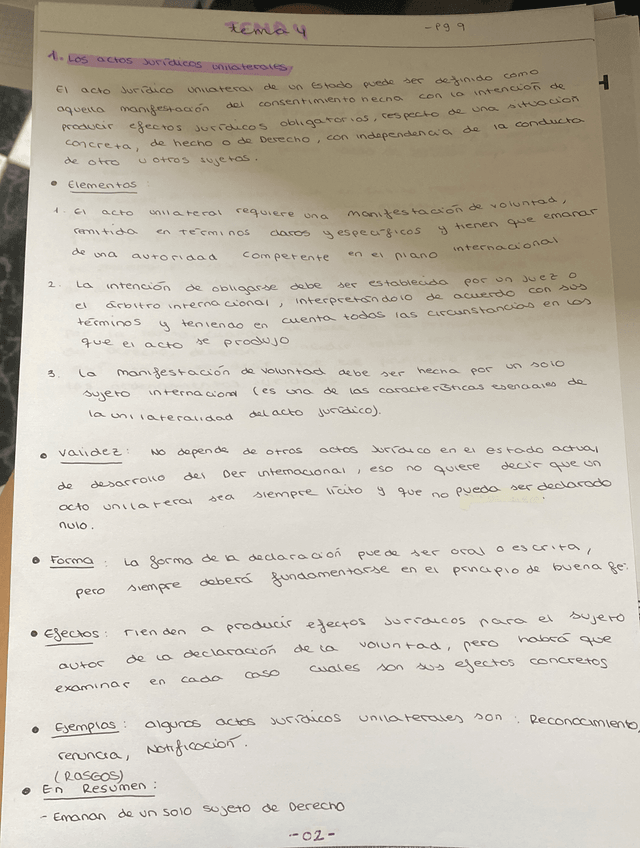 TEMA 4
- Pg 9
1. Los actos jurídicos unilaterales
El acto jurídico unilateral de un Estado puede ser definido como
aquella manifestación del consentimiento hecha con la intención de
producir efectos jurídicos obligatorios, respecto de una situación
concreta, de hecho o de Derecho, con independencia de la conducta
de otro u otros sujetos.
• Elementos
1. El acto unilateral requiere una manifestación de voluntad,
remitida en términos claros y específicos y tienen que emanar
de una autoridad competente en el plano internacional
2. La intención de obligarse debe ser establecida por un juez o
el árbitro internacional, interpretándolo de acuerdo con sus
términos y teniendo en cuenta todas las circunstancias en las
que el acto se produjo
3. La manifestación de voluntad debe ser hecha por un solo
sujeto internacional (es una de las características esenciales de
la unilateralidad del acto jurídico).
• Validez: No depende de otros actos jurídico en el estado actual
de desarrollo del Der internacional, eso no quiere decir que un
acto unilateral sea siempre lícito y que no pueda ser declarado
nulo.
• Forma: La forma de la declaración puede ser oral o escrita,
pero siempre deberá fundamentarse en el principio de buena fe.
• Efectos: Tienden a producir efectos jurídicos para el sujeto
autor de la declaración de la voluntad, pero habrá que
examinar en cada caso cuales son sus efectos concretos
• Ejemplos: algunos actos jurídicos unilaterales son: Reconocimiento,
renuncia, Notificación.
(RASGOS)
• En Resumen:
- Emanan de un solo sujeto de Derecho
-02-